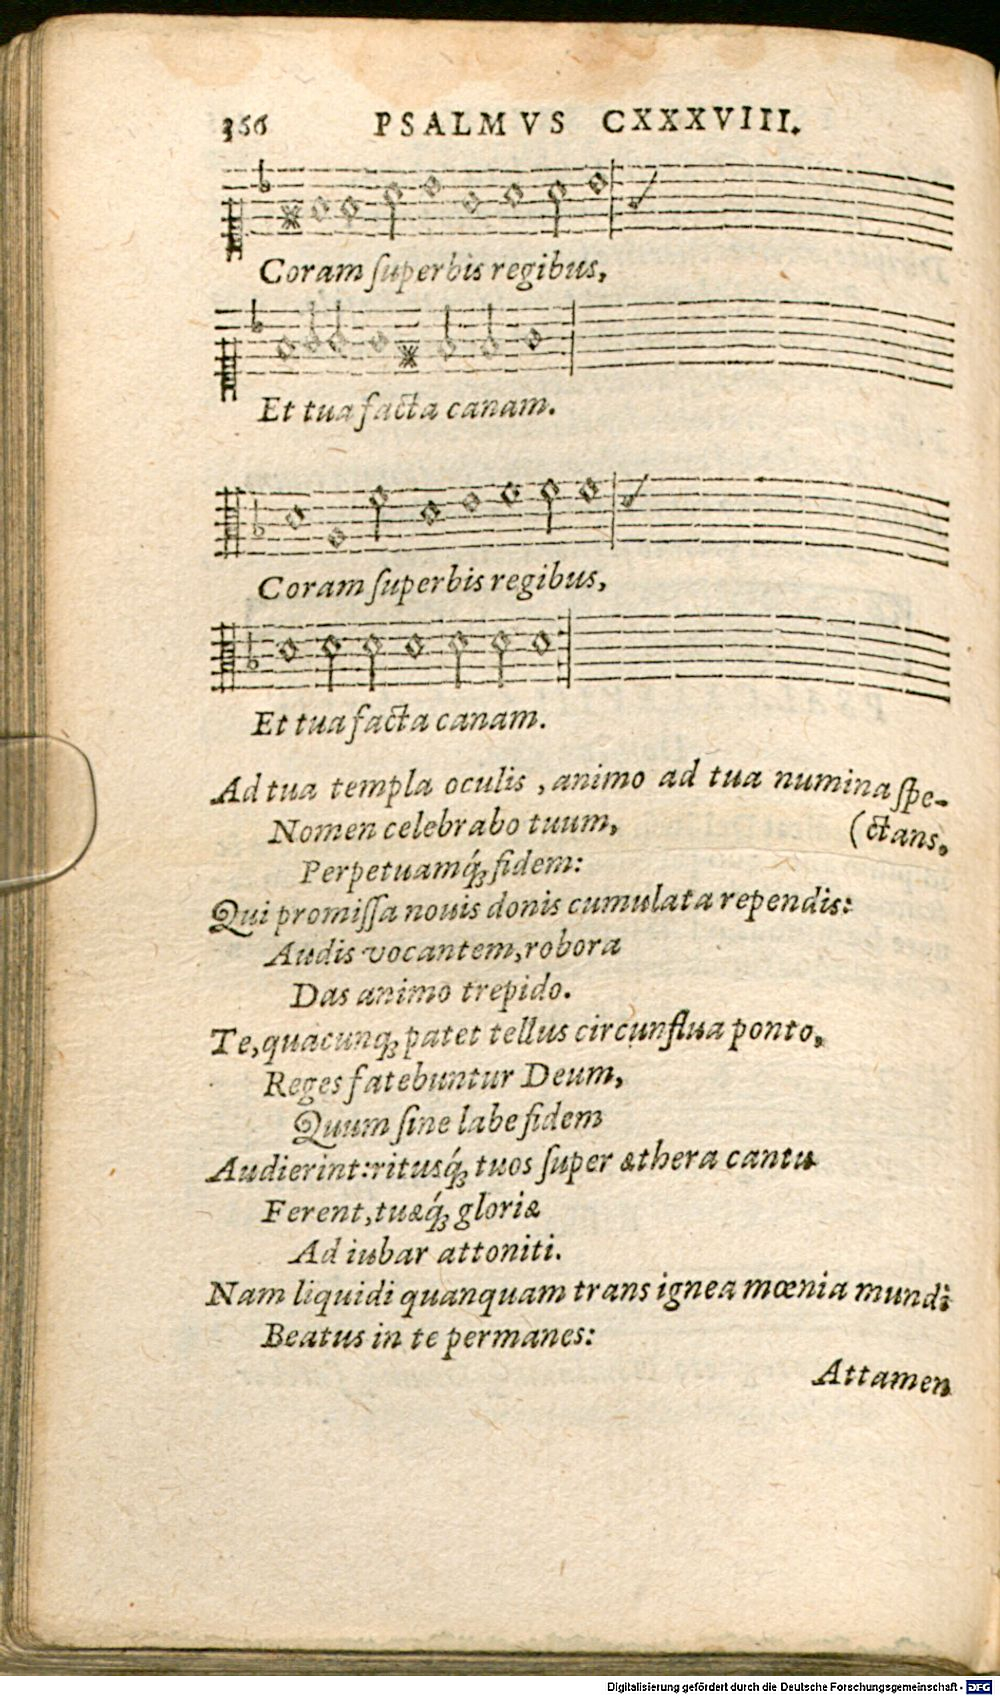 356 PSALMVS CXXXVIII.
Coram ſuperbis regibus,
Et tua facta canam.
Coram ſuperbis regibus,
Et tua facta canam.
Ad tua templa oculis, animo ad tua numina ſpe-
Nomen celebrabo tuum, (ctans.
Perpetuamq́; fidem:
Qui promiſſa nouis donis cumulata rependis:
Audis vocantem, robora
Das animo trepido.
Te, quacunq; patet tellus circunflua ponto,
Reges fatebuntur Deum,
Quum ſine labe fidem
Audierint: ritusq́; tuos ſuper æthera cantu
Ferent, tuæq́; gloriæ
Ad iubar attoniti.
Nam liquidi quanquam trans ignea mœnia mundi
Beatus in te permanes:
Attamen
Digitalisierung gefördert durch die Deutsche Forschungsgemeinschaft - DFG